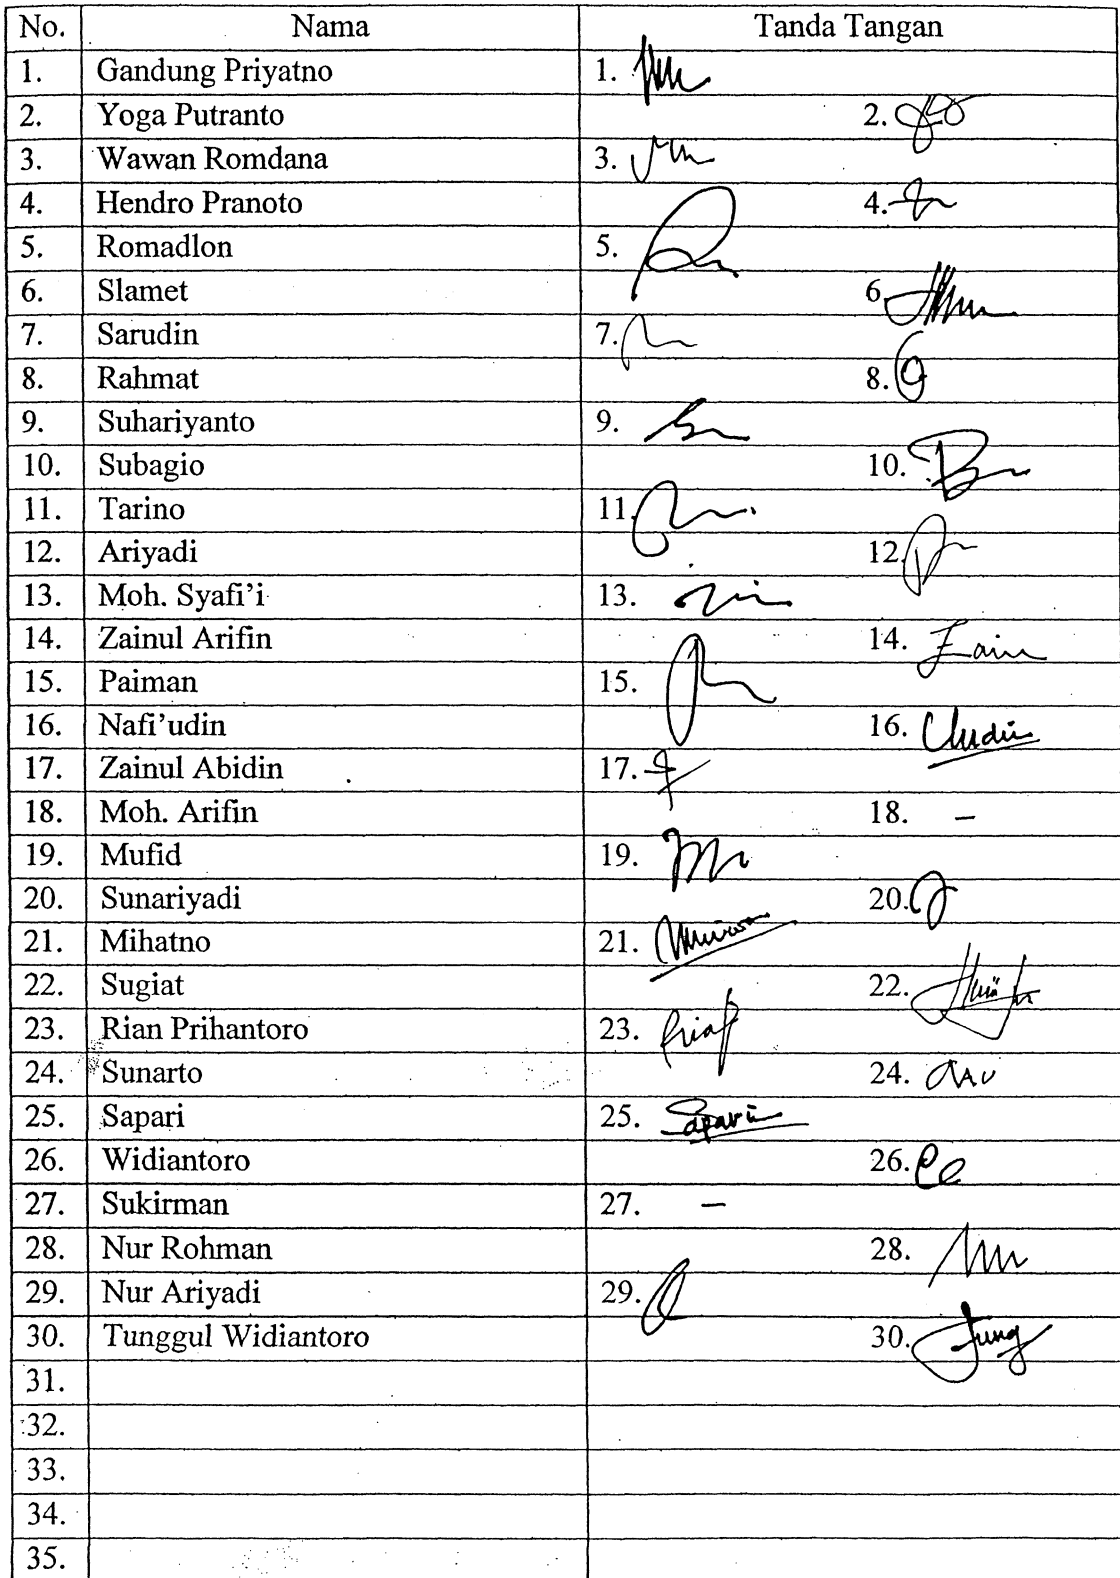 No. Nama Tanda Tangan
1. Gandung Priyatno 1.
2. Yoga Putranto 2.
3. Wawan Romdana 3.
4. Hendro Pranoto 4.
5. Romadlon 5.
6. Slamet 6
7. Sarudin 7.
8. Rahmat 8.
9. Suhariyanto 9.
10. Subagio 10.
11. Tarino 11.
12. Ariyadi 12.
13. Moh. Syafi'i 13.
14. Zainul Arifin 14. Zain
15. Paiman 15.
16. Nafi'udin 16.
17. Zainul Abidin 17.
18. Moh. Arifin 18. –
19. Mufid 19.
20. Sunariyadi 20.
21. Mihatno 21.
22. Sugiat 22.
23. Rian Prihantoro 23.
24. Sunarto 24.
25. Sapari 25. Sapari
26. Widiantoro 26.
27. Sukirman 27. –
28. Nur Rohman 28.
29. Nur Ariyadi 29.
30. Tunggul Widiantoro 30. Tung
31.
32.
33.
34.
35.